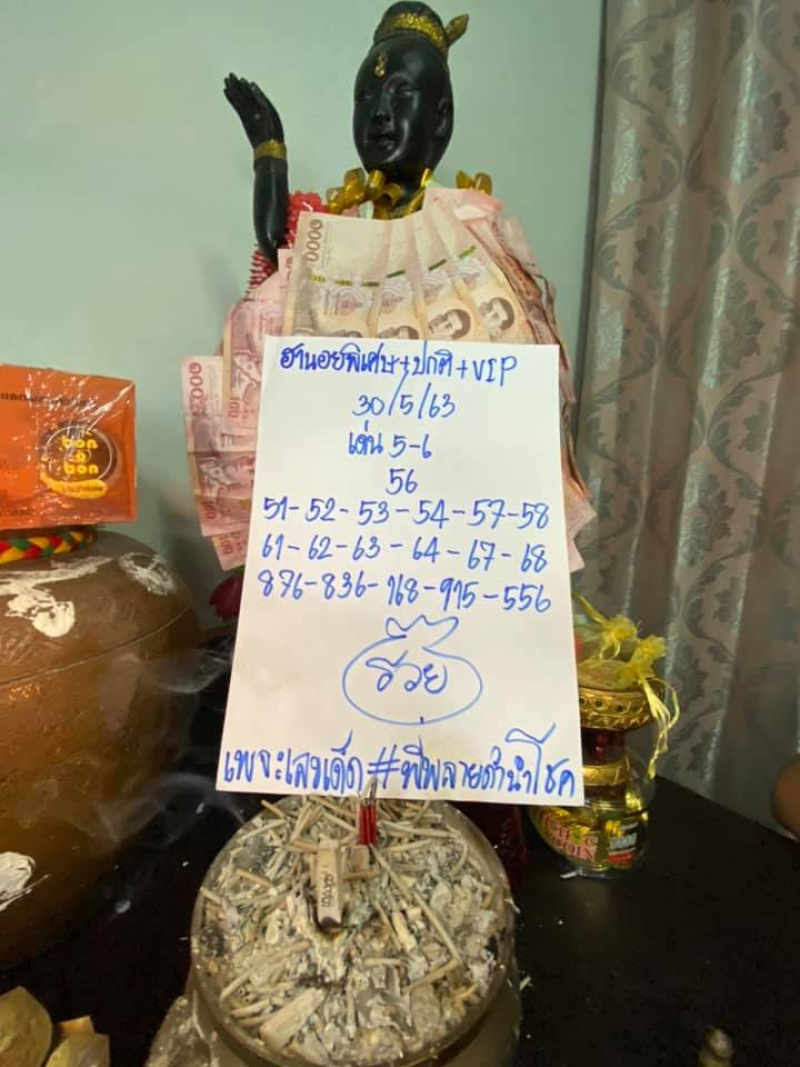 ฮานอยพิเศษ+ปกติ+VIP
30/5/63
เด่น 5-6
56
51-52-53-54-57-58
61-62-63-64-67-68
876-836-168-915-556
รวย
เพจะเลขเด็ด#พี่พลายดำนำโชค
1000
100
100
bon
o
bon